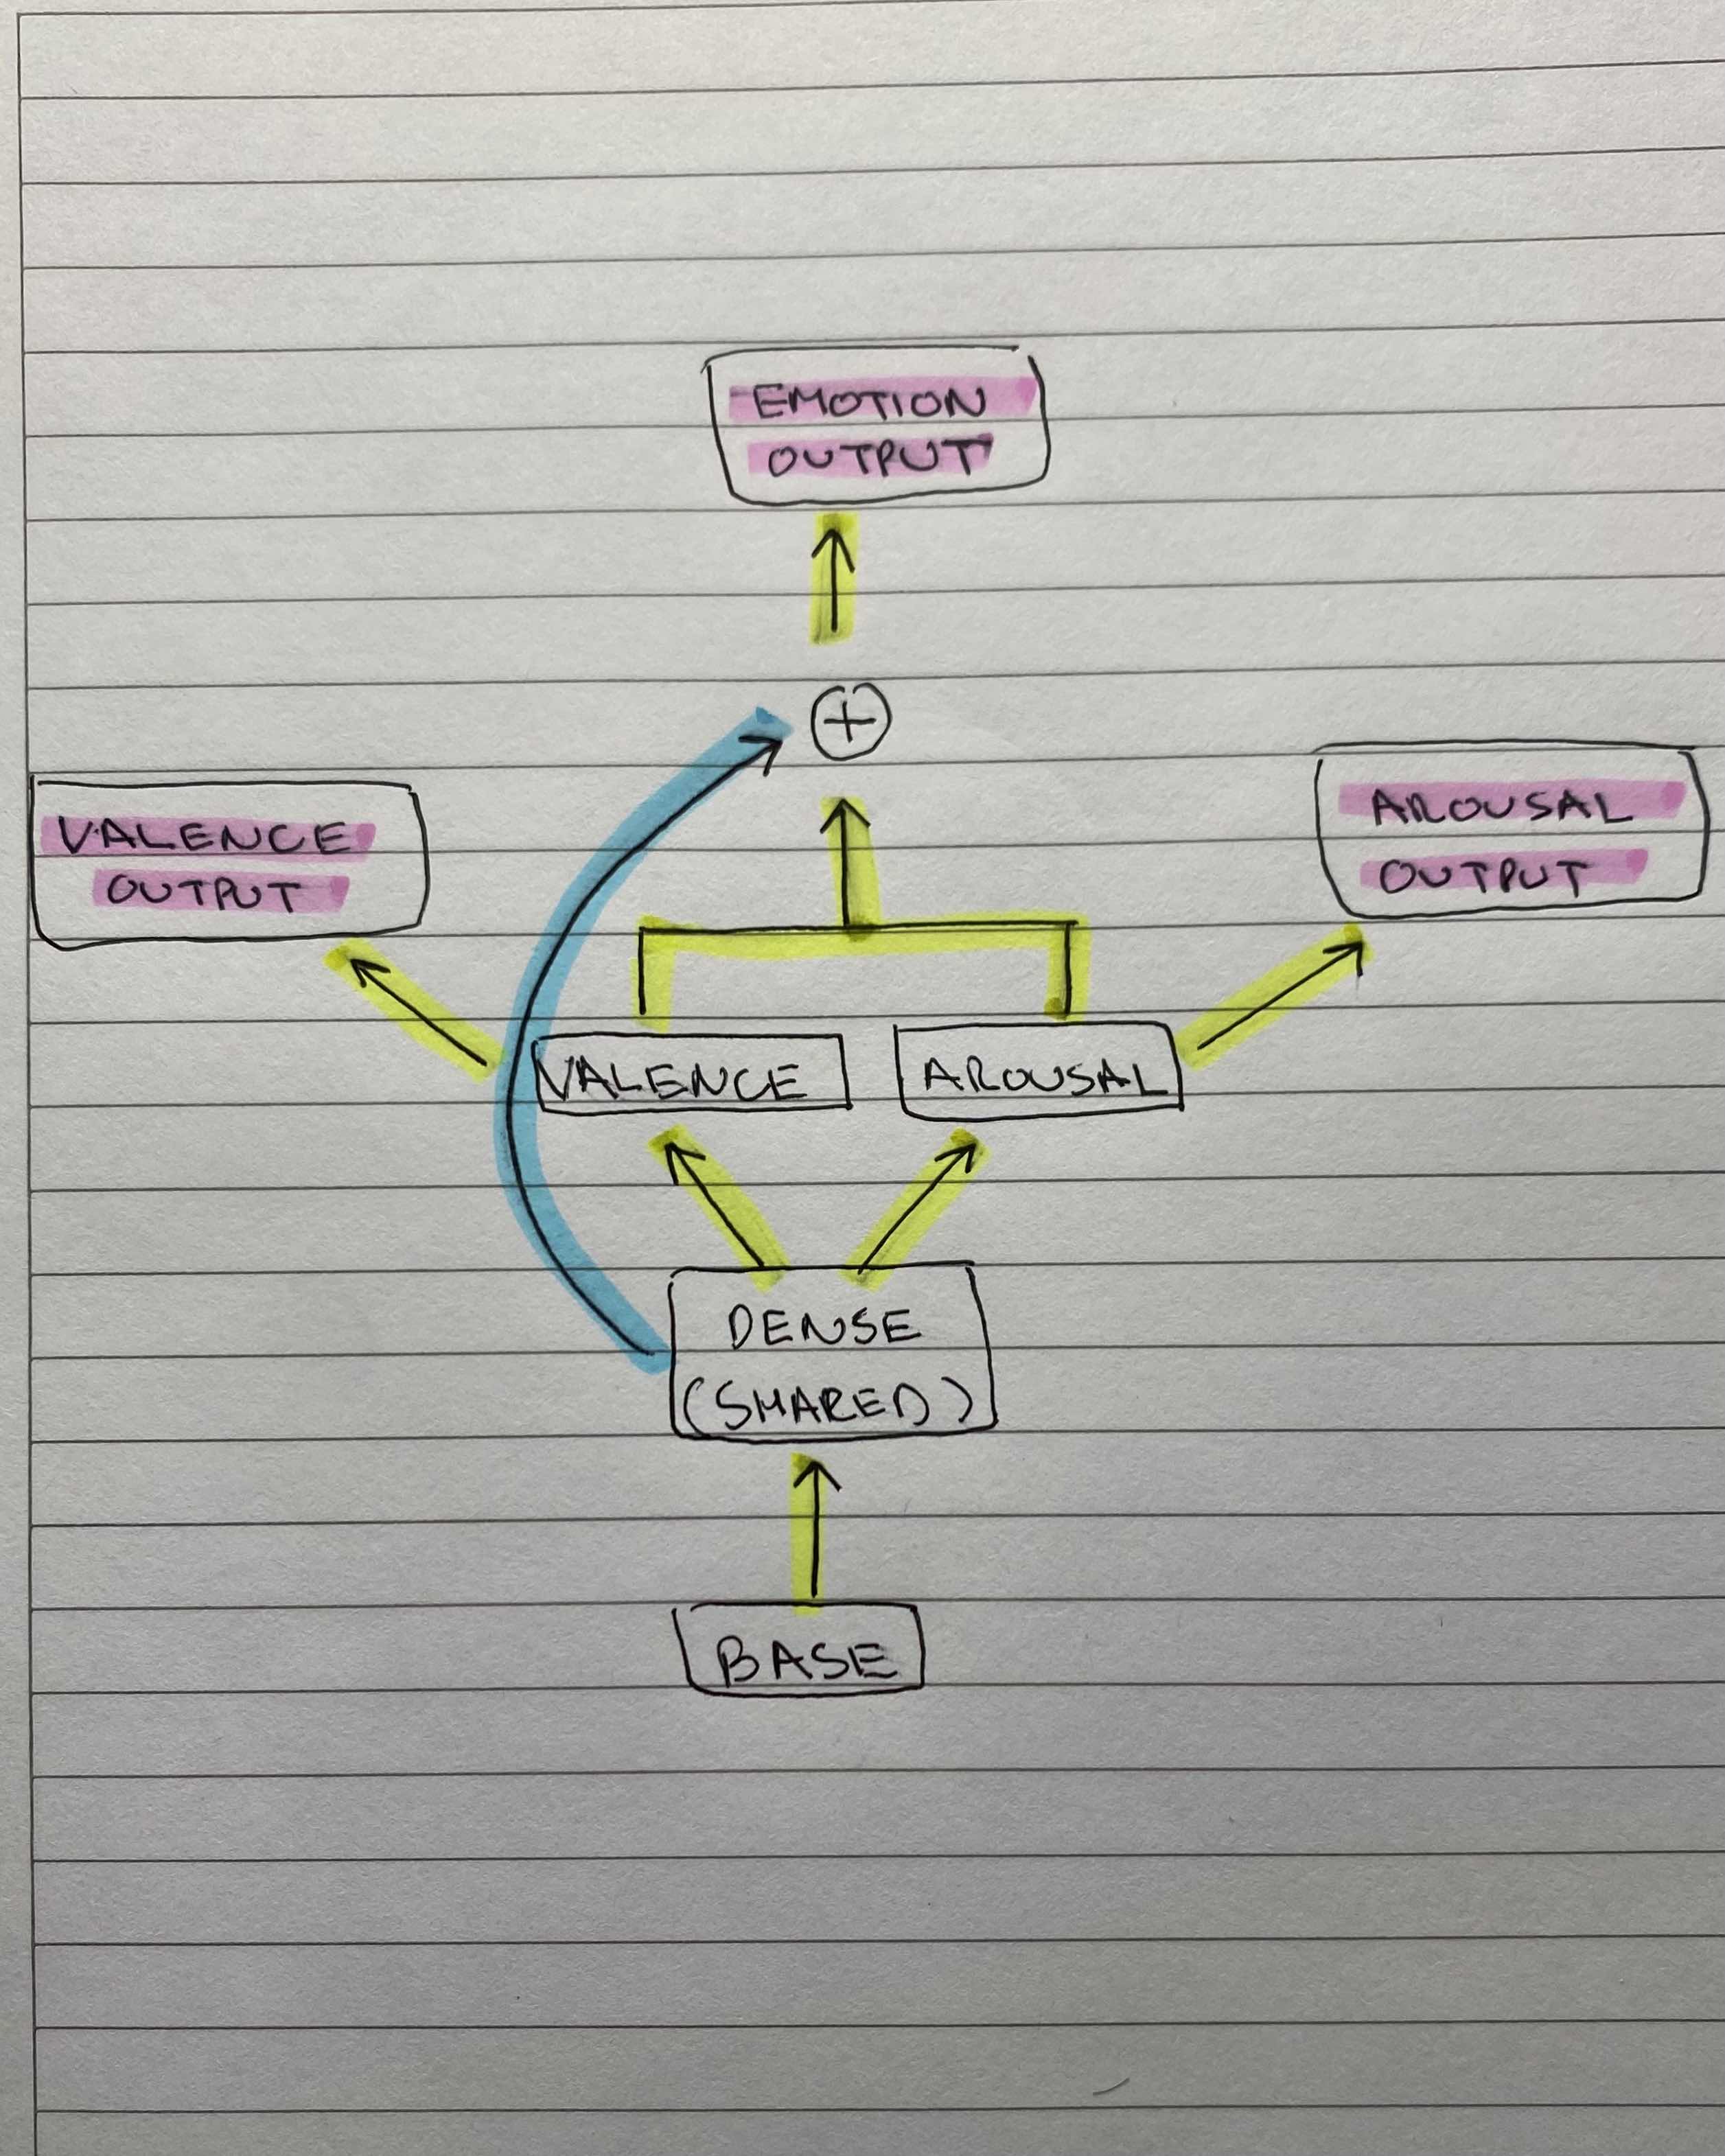 EMOTION
OUTPUT
+
VALENCE
OUTPUT
AROUSAL
OUTPUT
VALENCE
AROUSAL
DENSE
(SHARED)
BASE